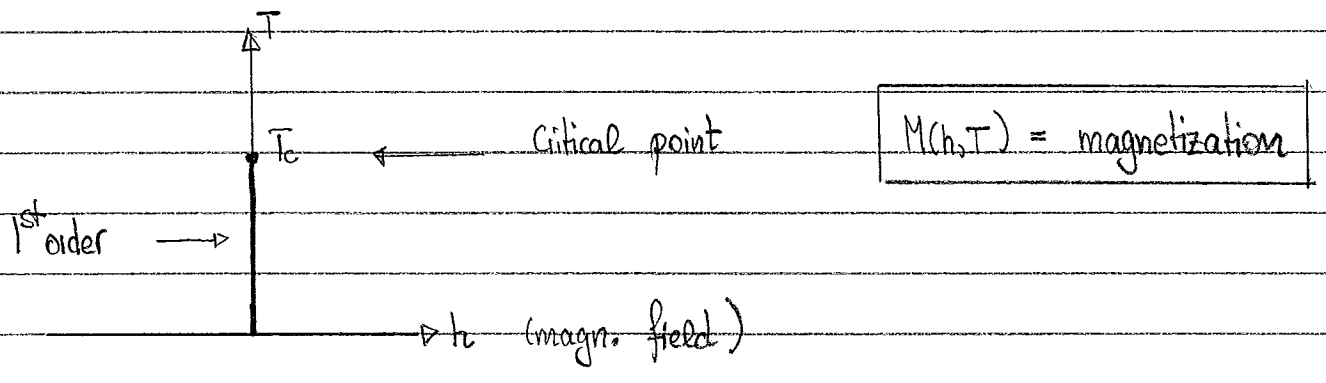 T
Tc ← Critical point
M(h,T) = magnetization
1st order →
h (magn. field)